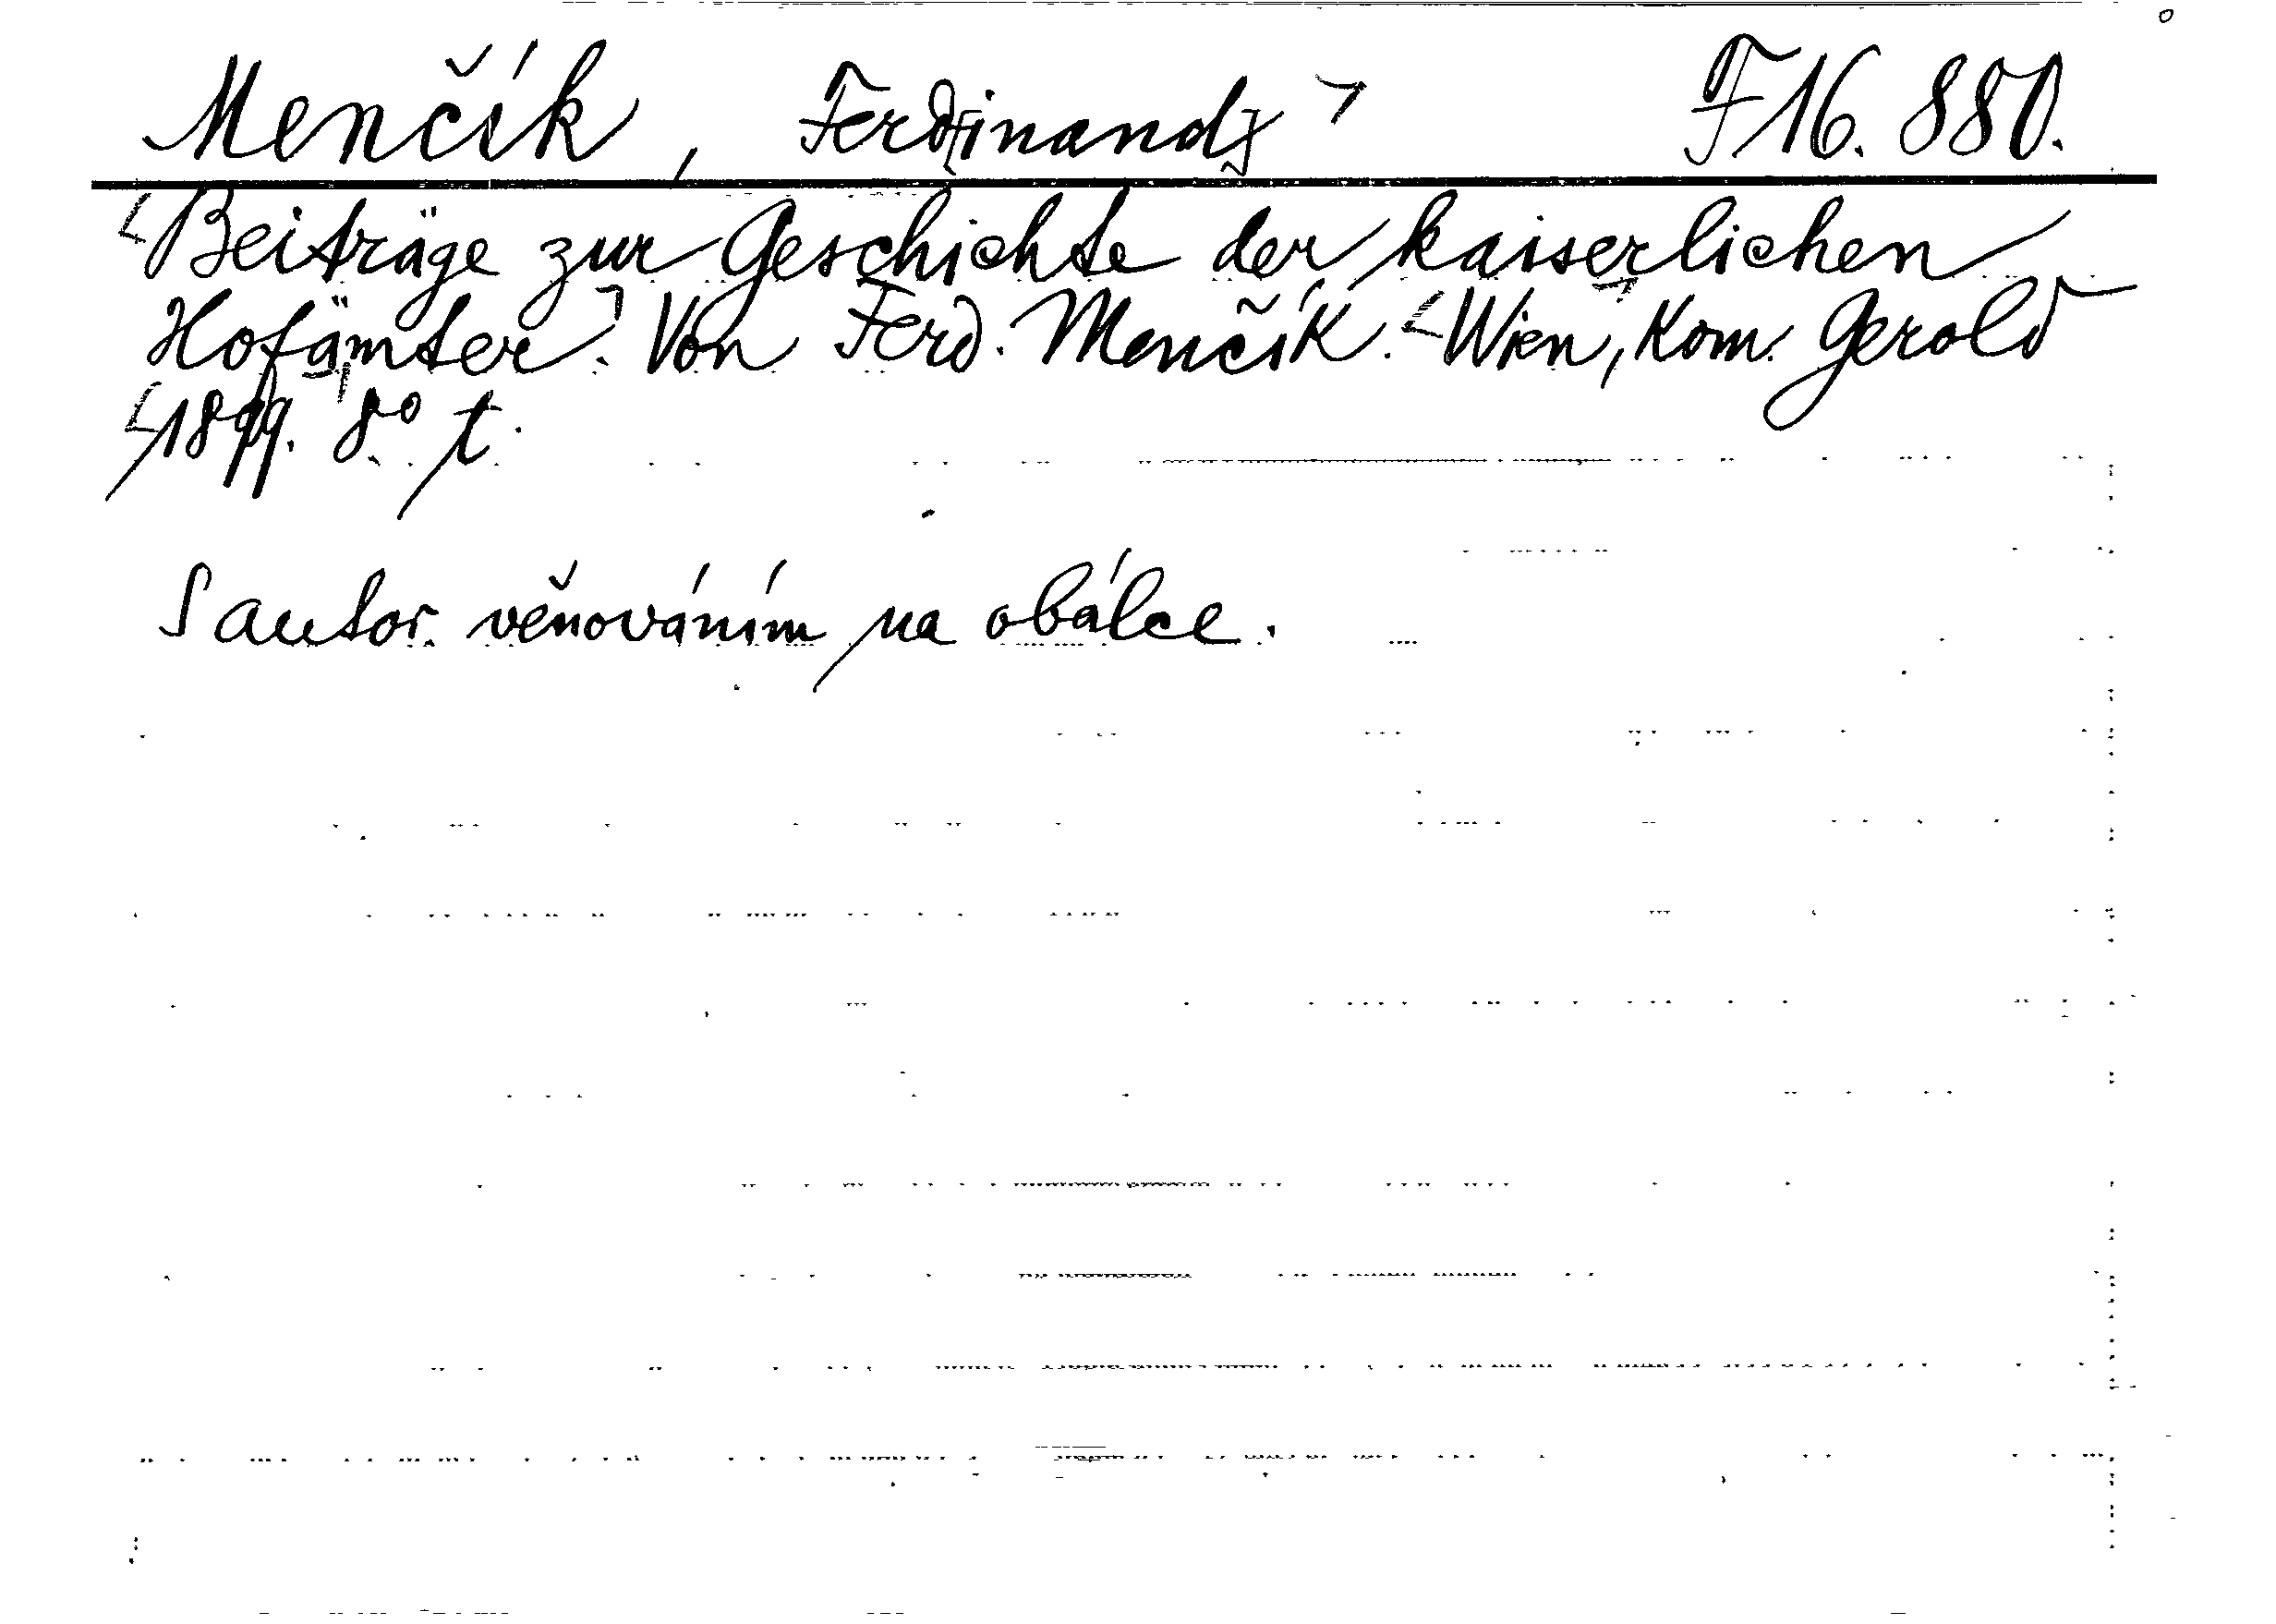 Menčík, Ferd[inand] F 16.880.
Beiträge zur Geschichte der kaiserlichen
Hofämter. Von Ferd. Menčík. Wien, Kom. Gerold
1899. 8° t.
S autor. věnováním na obálce.